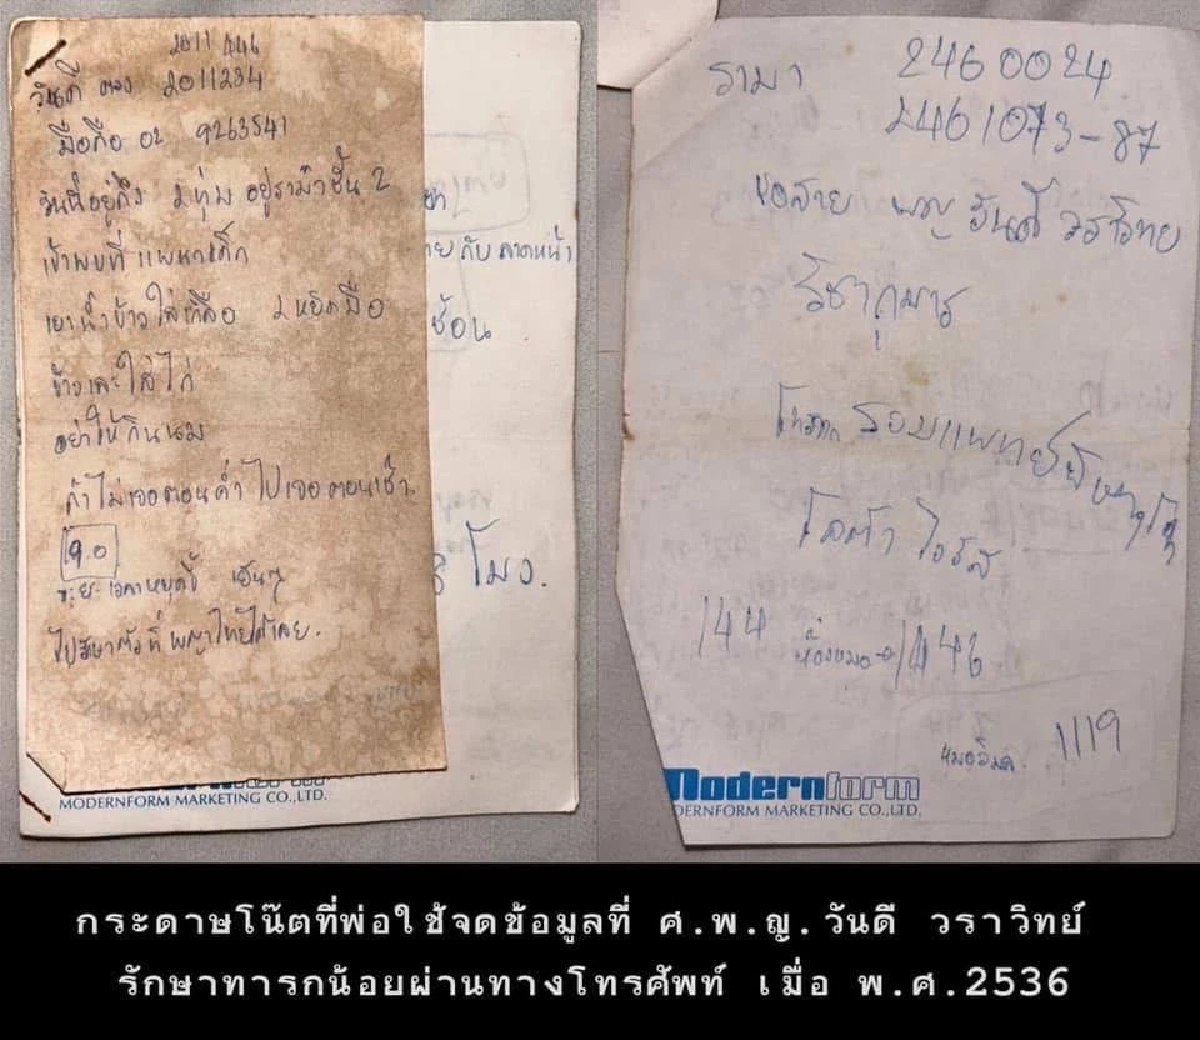 2011446
วันดี ตรง 2011234
มือถือ 02 9263541
วันนี้อยู่ถึง 2 ทุ่ม อยู่รามาชั้น 2
เข้าพบที่ แผนกเด็ก
เอาน้ำข้าวใส่เกลือ 2 หยิบมือ
ข้าวเละใส่ไก่
อย่าให้กินนม
ถ้าไม่เจอตอนค่ำไปเจอตอนเช้า.
9.0
ไปรักษาตัวที่ พญาไทได้เลย.
ายกับคาดหน้า
ช้อน
โมง.
MODERNFORM MARKETING CO.,LTD.
รามา 2460024
2461073-87
ขอสาย พญ วันดี วราวิทย
วิชากุมาร
โรตา ไวรัส
144 ห้องหมอ 1446
1119
Modernform
DERNFORM MARKETING CO.,LTD.
กระดาษโน๊ตที่พ่อใช้จดข้อมูลที่ ศ.พ.ญ.วันดี วราวิทย์
รักษาทารกน้อยผ่านทางโทรศัพท์ เมื่อ พ.ศ.2536